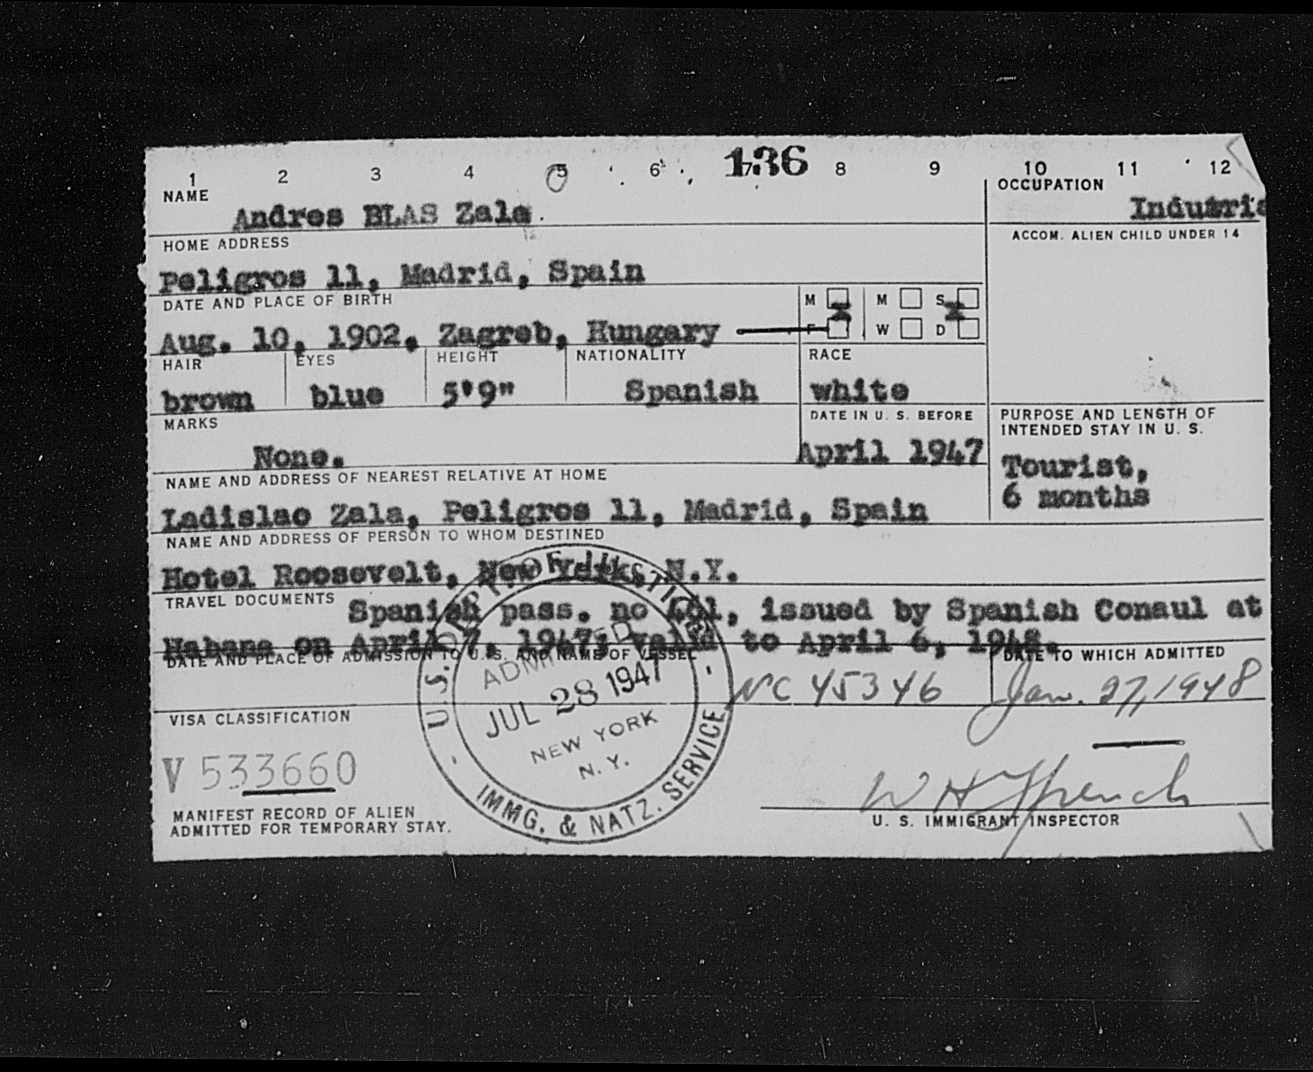 1 2 3 4 5 6 136 8 9 10 11 12
NAME
Andres BLAS Zala
OCCUPATION
Industria
HOME ADDRESS
Peligros 11, Madrid, Spain
ACCOM. ALIEN CHILD UNDER 14
DATE AND PLACE OF BIRTH
Aug. 10, 1902, Zagreb, Hungary
M M S
F W D
HAIR EYES HEIGHT NATIONALITY RACE
brown blue 5'9" Spanish white
MARKS
None.
DATE IN U. S. BEFORE
April 1947
PURPOSE AND LENGTH OF
INTENDED STAY IN U. S.
Tourist,
6 months
NAME AND ADDRESS OF NEAREST RELATIVE AT HOME
Ladislao Zala, Peligros 11, Madrid, Spain
NAME AND ADDRESS OF PERSON TO WHOM DESTINED
Hotel Roosevelt, New York, N.Y.
TRAVEL DOCUMENTS
Spanish pass. no issued by Spanish Conaul at
Habana on April 7, 1947; valid to April 6, 1948.
DATE AND PLACE OF ADMISSION TO U. S. AND NAME OF VESSEL
DATE TO WHICH ADMITTED
NC 45346 Jan. 27, 1948
U. S. DEPT. OF JUSTICE
ADMITTED
JUL 28 1947
NEW YORK
N. Y.
IMMG. & NATZ. SERVICE
VISA CLASSIFICATION
V 533660
W H French
U. S. IMMIGRANT INSPECTOR
MANIFEST RECORD OF ALIEN
ADMITTED FOR TEMPORARY STAY.